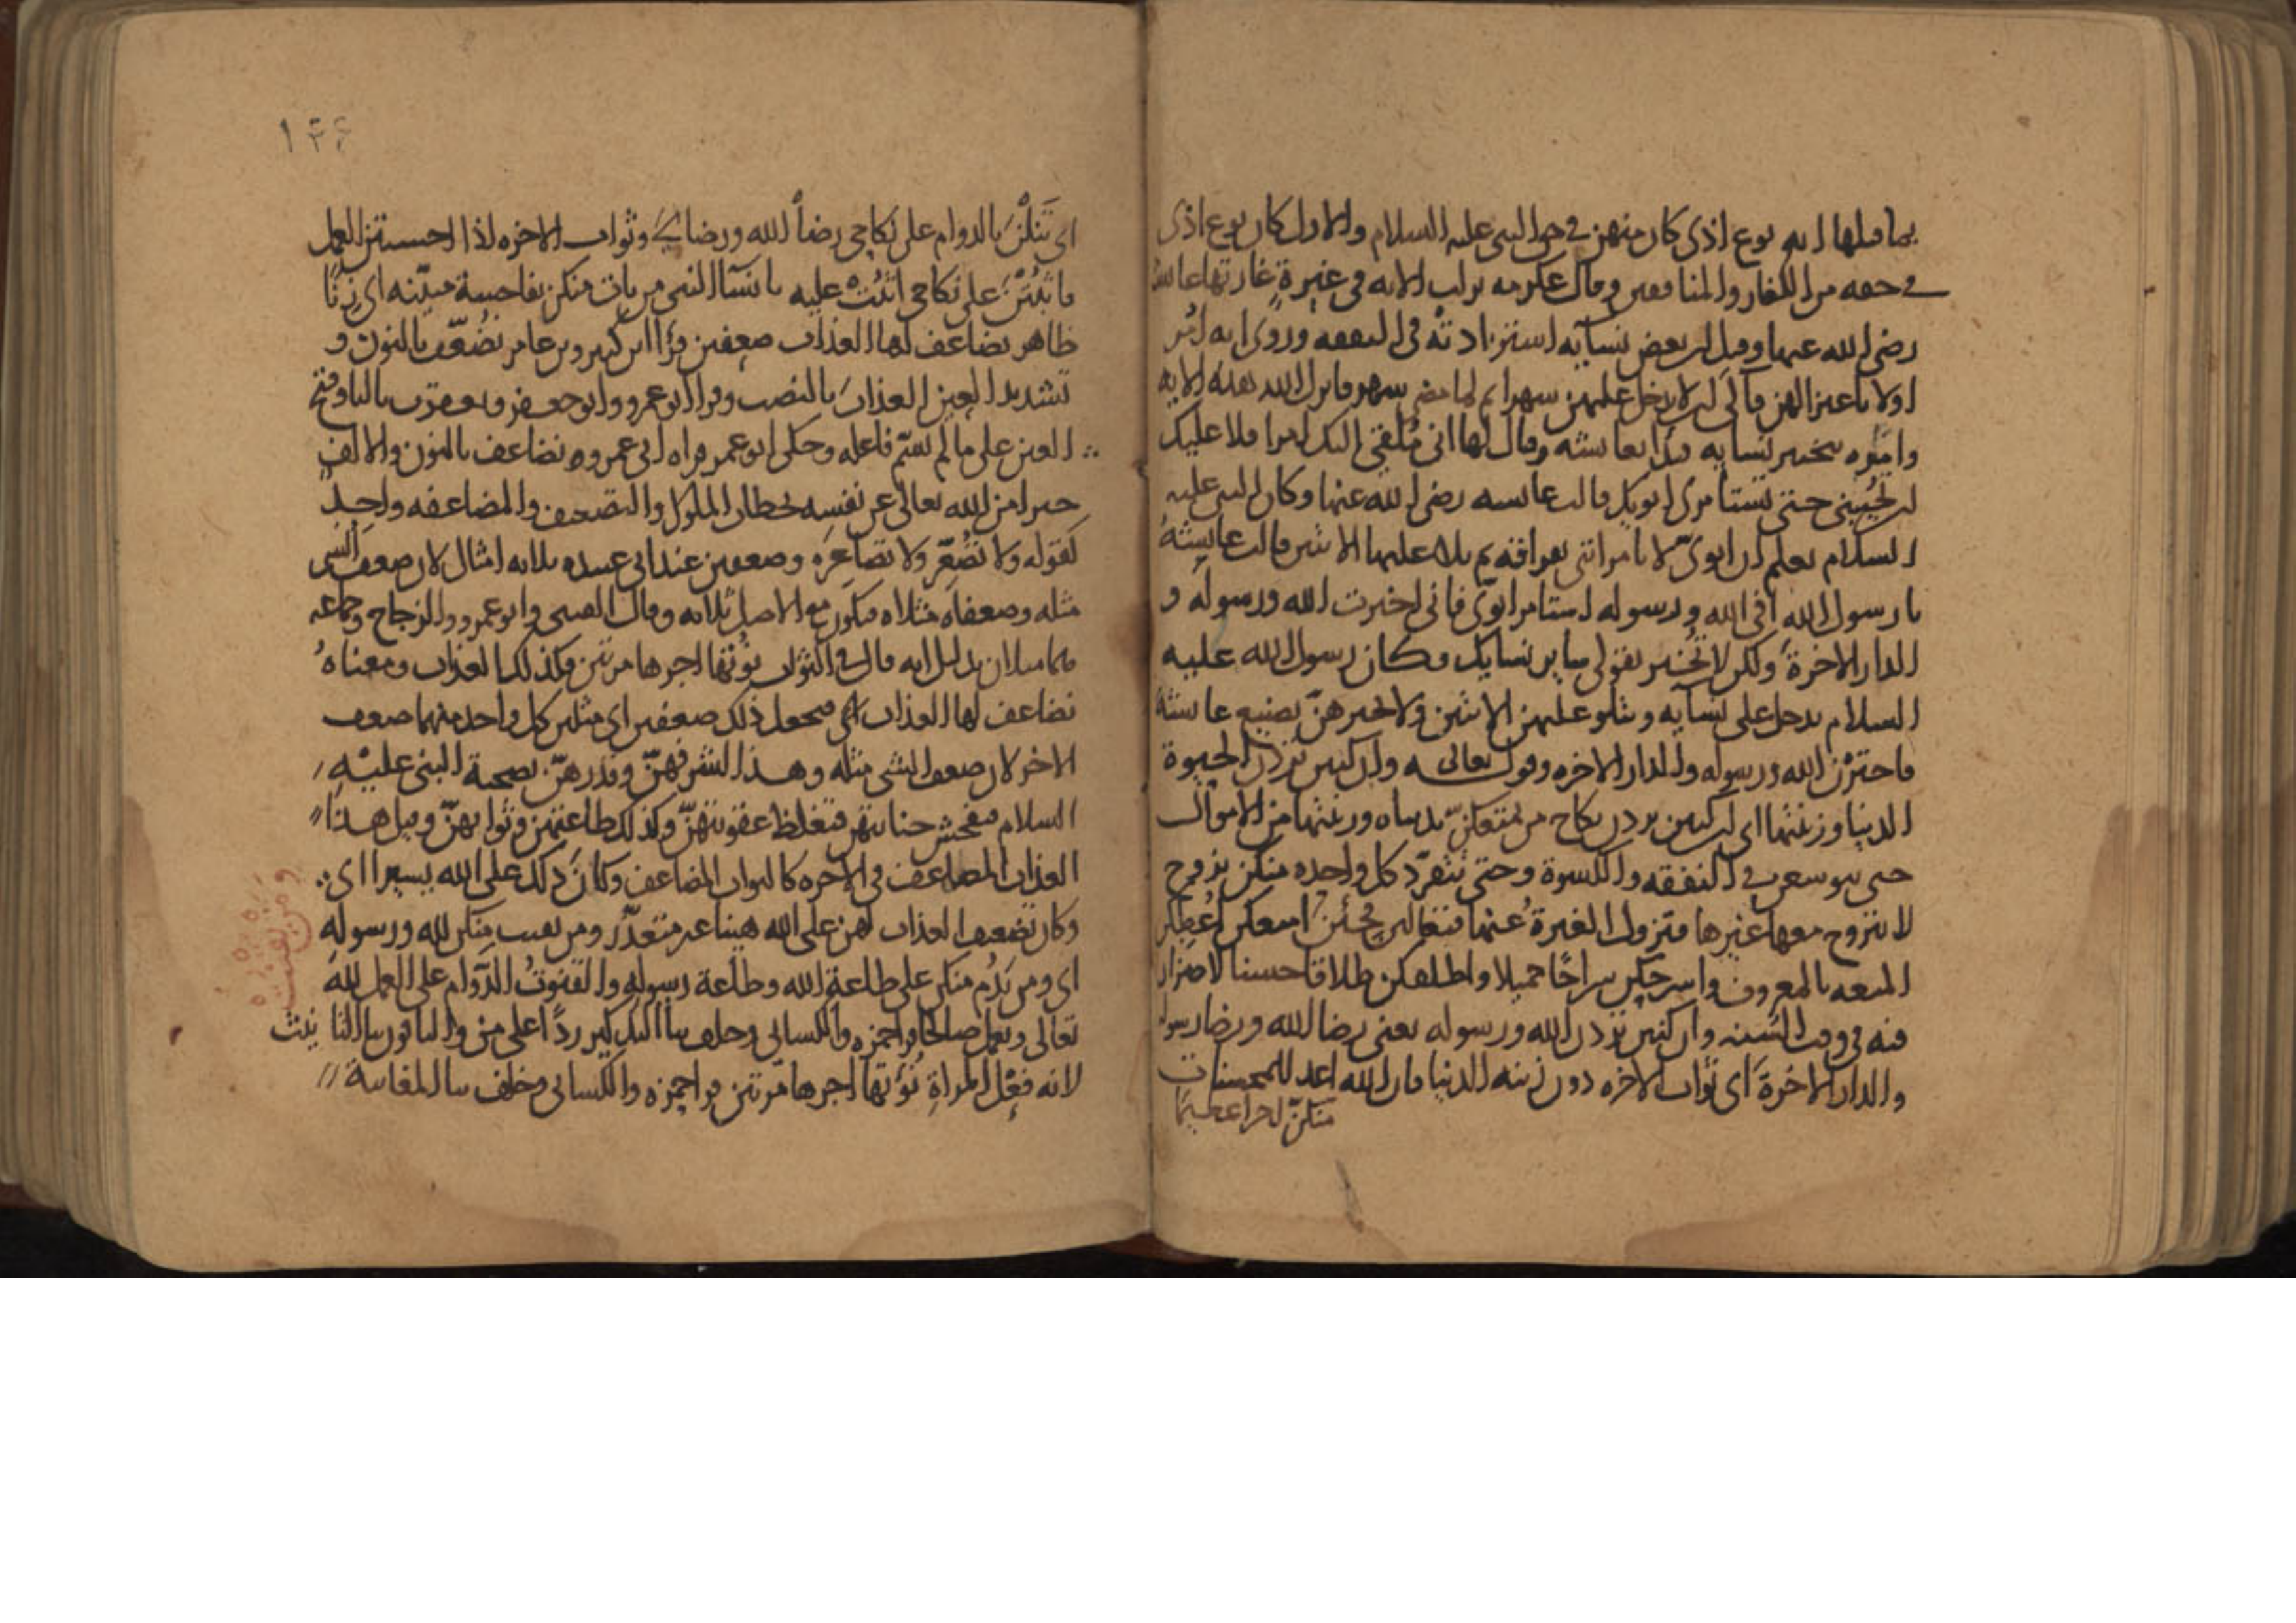 بما قبلها انه نوع اذى كان منهن في حق النبي عليه السلام والاول كان نوع اذى
في حقه من الكفار والمنافقين وقال عكرمه نزلت الايه في غيرة غارتها عائشة
رضي الله عنها وقيل ان بعض نسآيه استزادته في النفقه وروى انه امر
اولا باعتزالهن فآلى ان لا يدخل عليهن شهرا ثم لما مضى شهر فانزل الله هذه الايه
وامره بتخيير نسايه فبدا بعائشه وقال لها اني مُلقي اليك امرا فلا عليك
ان تجيبيني حتى تستامري ابويك قالت عائشه رضي الله عنها وكان النبي عليه
السلام يعلم ان ابويّ لا يامرانني بفراقه ثم تلا عليها الايتين فقالت عايشةُ
يا رسول الله افي الله ورسوله استامر ابويّ فاني اخترت الله ورسوله و
الدار الاخرة ولكن لا تُخبر بقولي ساير نسايك فكان رسول الله عليه
السلام يدخل على نسآيه ويتلو عليهن الايتين ولا يخبرهنّ بصنيع عائشة
فاخترن الله ورسوله والدار الاخره وقوله تعالى وان كنتن تردن الحيوة
الدنيا وزينتها اي ان كنتن تردن نكاح من يمتعكنّ بدنياه وزينتها من الاموال
حتى يتوسعن في النفقه والكسوة وحتى تتفرّد كل واحده منكن بزوج
لا يتزوج معها غيرها فتزول الغيرة عنها فتعالين فجئن امتعكن اُعطكن
المتعه بالمعروف واسرحكن سراحًا جميلا واطلقكن طلاقا حسنا لا ضرار
فيه في وقت السنه وان كنتن تردن الله ورسوله يعني رضا الله ورضا رسوله
والدار الاخرةَ اي ثواب الاخره دون زينه الدنيا فان الله اعد للمحسنات
منكنّ اجرا عظيما
١٤٤
اي تَنلْنَ بالدوام على نكاحي رضاً الله ورضاي وثواب الاخره اذا احسنتن العمل
ما ثبتنّ على نكاحي اثبُت عليه يا نسآ النبي من يات منكن بفاحشة مبيّنه اي زنًا
ظاهر يضاعف لها العذاب ضعفين قرأ ابن كثير وبن عامر نضُعّف بالنون و
تشديد العين العذابَ بالنصب وقرا ابو عمرو وابو جعفر ويعقوب باليا وفتح
العين على ما لم يسّم فاعله وحكى ابو عمر قراه ابي عمرو نضاعف بالنون والالف
خبرا من الله تعالى عن نفسه بخطاب الملوك والتضعيف والمضاعفه واحِدٌ
كقوله ولا تصُعّر ولا تصاعِره وضعفين عند ابي عبيده ثلاثه امثال لان ضعف الشي
مثله وضعفاه مثلاه فيكون مع الاصل ثلاثه وقال القتبي وابو عمرو والزجاج وجماعه
هما مثلان بدليل انه قال في الثواب نؤتها اجرها مرتين فكذلك العذاب ومعناهُ
نضاعف لها العذاب اي نجعل ذلك ضعفين اي مثلين كل واحد منهما ضعف
الاخر لان ضعف الشي مثله وهذا لشرفهنّ وقدرهنّ بصحبة النبي عليْهِ
السلام فتفحش جنايتهن فتغلظ عقوبتهنّ وكذلك طاعتهن وثوابهنّ وقيل هذا
العذاب المضاعف في الاخره كالثواب المضاعف وكانَ ذلك على الله يسيرا اي
وكان تضعيف العذاب لهن على الله هينا غير متعذّر ومن يقنت منكن لله ورسولِهِ
اي ومن يَدُم منكن على طاعة الله وطاعة رسوله والقنوتُ الدّوام على العمل لله
تعالى وتعمل صالحا قرا حمزه والكسائي وخلف باليا التذكير ردًا على من والباقون بالتا نيث
لانه فعْل المراةِ نُؤتها اجرها مرّتين قرا حمزه والكسائي وخلف بيا المغايبة
ومن يقنت